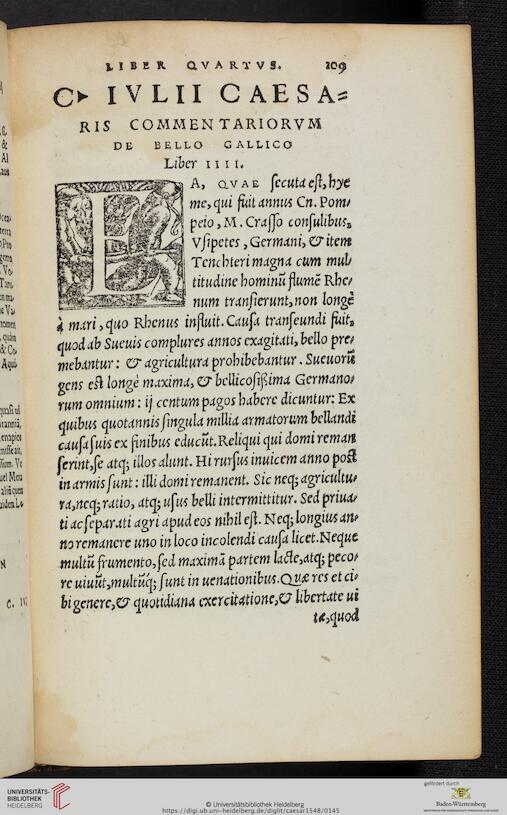 LIBER QVARTVS. 109
C▸ IVLII CAESA=
RIS COMMENTARIORVM
DE BELLO GALLICO
Liber IIII.
EA, QVAE secuta est, hye
me, qui fuit annus Cn. Pom/
peio, M. Crasso consulibus,
Vsipetes, Germani, & item
Tenchteri magna cum mul/
titudine hominũ flumẽ Rhe/
num transierunt, non longè
à mari, quo Rhenus influit. Causa transeundi fuit,
quod ab Sueuis complures annos exagitati, bello pre/
mebantur: & agricultura prohibebantur. Sueuorũ
gens est longè maxima, & bellicosißima Germano/
rum omnium: ij centum pagos habere dicuntur: Ex
quibus quotannis singula millia armatorum bellandi
causa suis ex finibus educũt. Reliqui qui domi reman
serint, se atq; illos alunt. Hi rursus inuicem anno post
in armis sunt: illi domi remanent. Sic neq; agricultu/
ra, neq; ratio, atq; usus belli intermittitur. Sed priua/
ti ac separati agri apud eos nihil est. Neq; longius an/
no remanere uno in loco incolendi causa licet. Neque
multũ frumento, sed maximã partem lacte, atq; peco/
re uiuũt, multũq́; sunt in uenationibus. Quæ res et ci/
bi genere, & quotidiana exercitatione, & libertate ui
tæ, quod
UNIVERSITÄTS-
BIBLIOTHEK
HEIDELBERG
© Universitätsbibliothek Heidelberg
https://digi.ub.uni-heidelberg.de/diglit/caesar1548/0145
gefördert durch
Baden-Württemberg